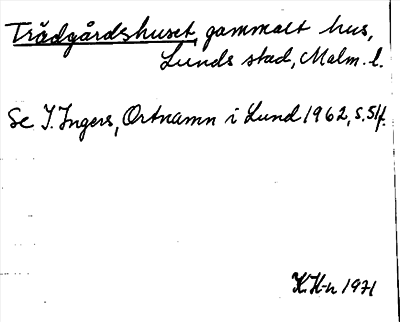 Trädgårdshuset, gammalt hus,
Lunds stad, Malm. l.
Se I. Ingers, Ortnamn i Lund 1962, s. 51f.
K.H-n 1971